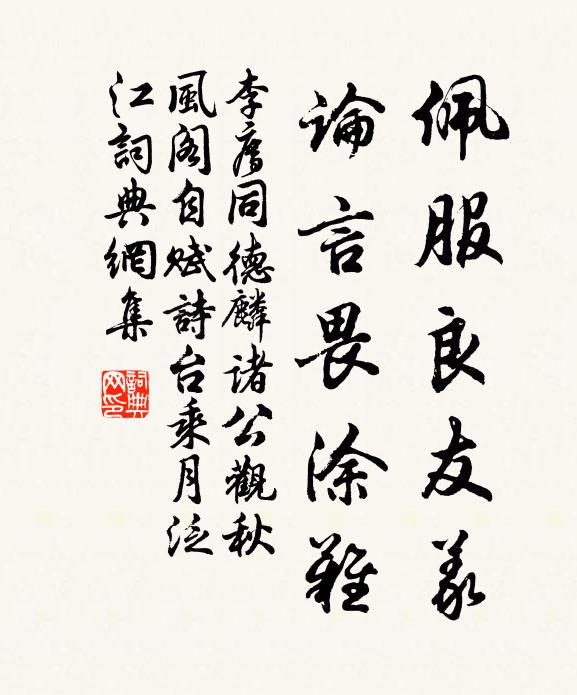 佩服良友義
論言畏涂難
李廌同德麟諸公觀秋
風閣自賦詩台乘月泛
江詞典網集
詞典
网印